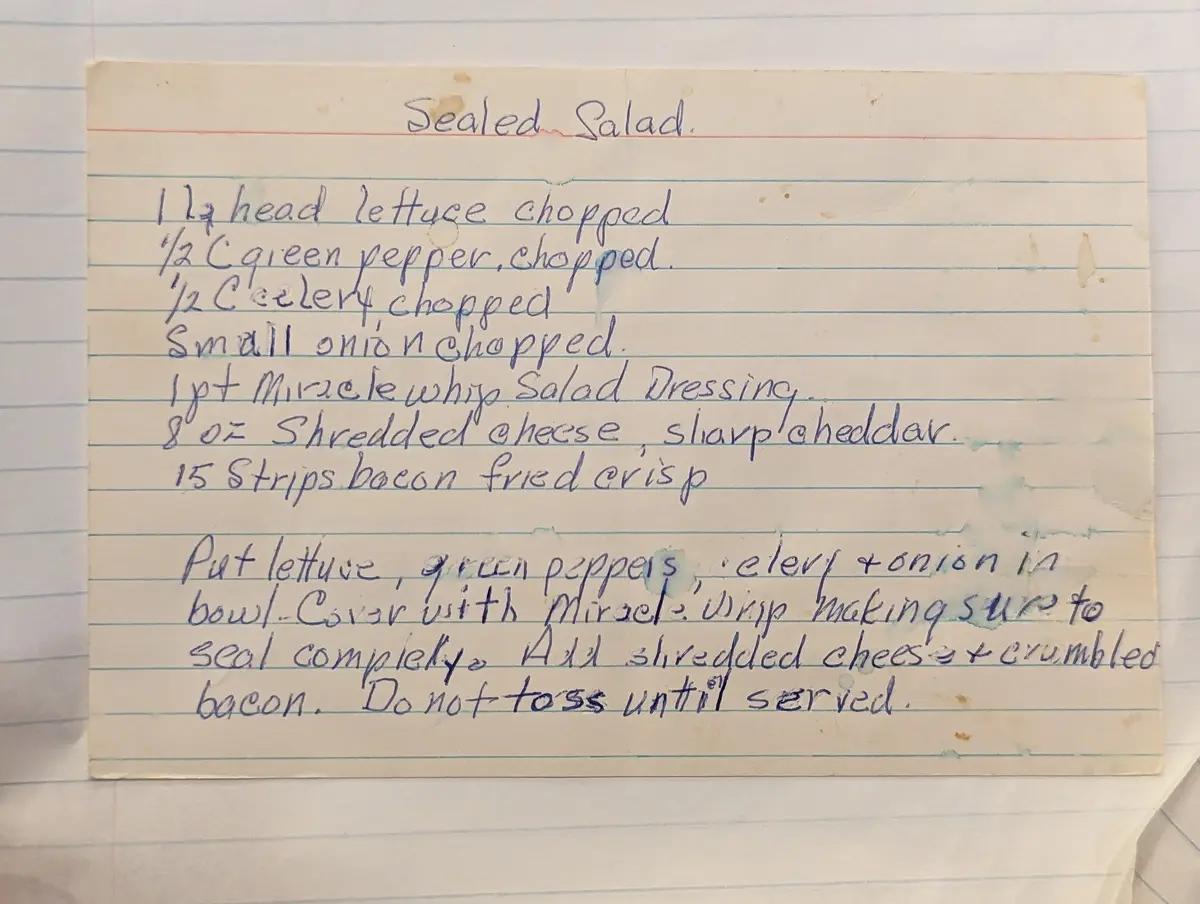 Sealed Salad.
1 1/2 head lettuce chopped
1/2 C green pepper, chopped.
1/2 C celery, chopped
Small onion chopped.
1 pt Miracle whip Salad Dressing.
8 oz Shredded cheese, sharp cheddar.
15 Strips bacon fried crisp
Put lettuce, green peppers, celery + onion in
bowl. Cover with Miracle Whip making sure to
seal complety. Add shredded cheese + crumbled
bacon. Do not toss until served.